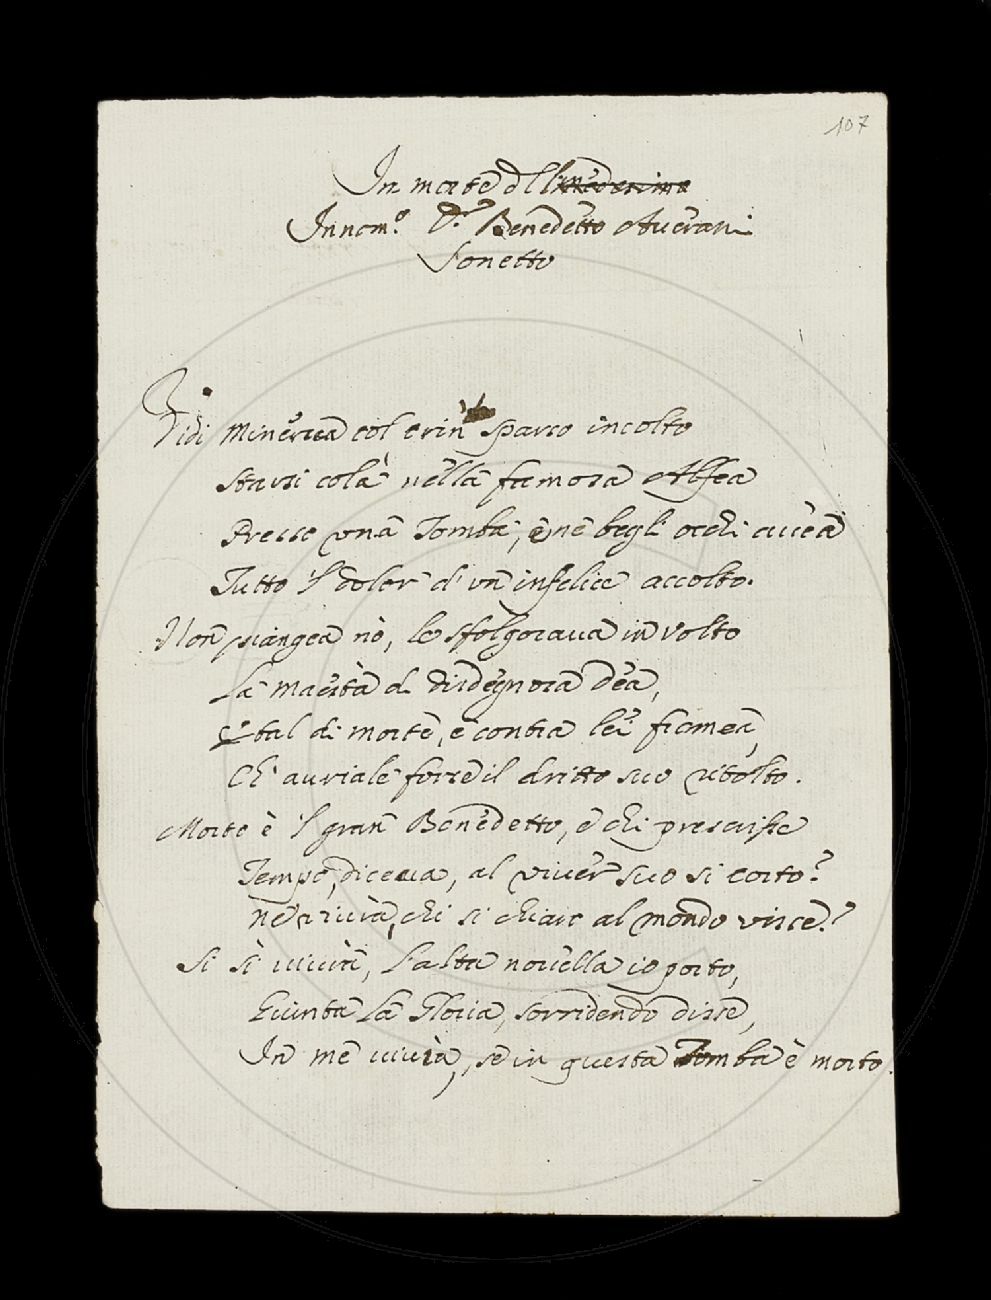 107
In morte dell medesimo
Innom.º D.r Benedetto Averani
Sonetto
Vidi Minerva col crin sparso incolto
Starsi colà nella famosa Alfea
Presso una Tomba, e ne begli occhi avea
Tutto 'l dolor d'un infelice accolto.
Non piangea nò, le sfolgorava in volto
La maestà di disdegnosa Dea,
E tal di morte, e contra lei fremea,
Ch' avriale forse il dritto suo ritolto.
Morto è 'l gran Benedetto, e chi prescrisse
Tempo, diceva, al viver suo si corto?
Ne vivrà, chi si chiaro al mondo visse?
Si sì vivrà, l'alta novella io porto,
Giunta La Gloria, sorridendo disse,
In me vivrà, se in questa Tomba è morto.